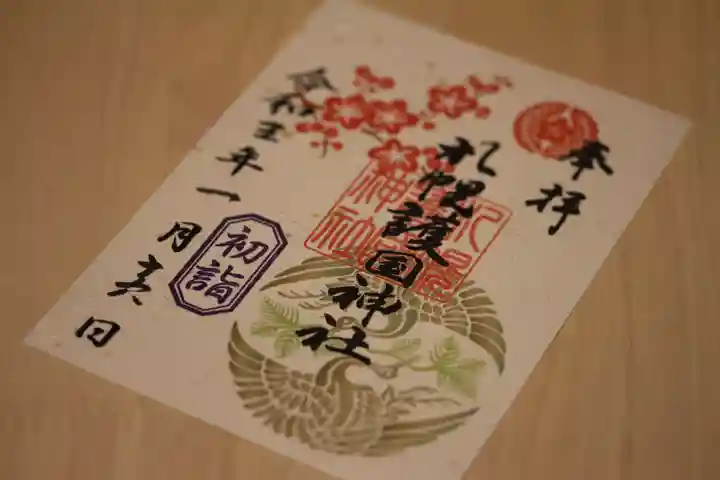 奉拝
札幌護国神社
札幌護国神社
初詣
令和五年一月吉日